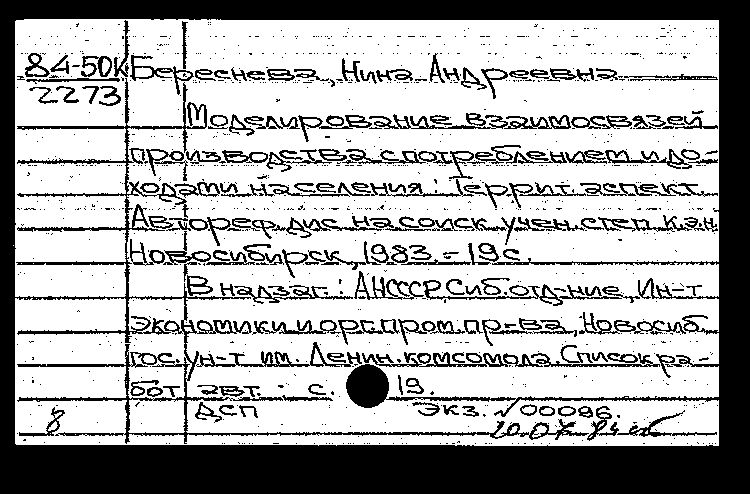 84-50К Береснева, Нина Андреевна
2273
Моделирование взаимосвязей
производства с потреблением и до-
ходами населения: Террит. аспект.
Автореф. дис. на соиск. учен. степ. к.э.н.
Новосибирск, 1983. - 19 с.
В надзаг.: АН СССР, Сиб. отд-ние, Ин-т
экономики и орг. пром. пр-ва, Новосиб.
гос. ун-т им. Ленин. комсомола. Список ра-
бот авт. с. 19.
8 ДСП Экз. №00096.
20.07.84